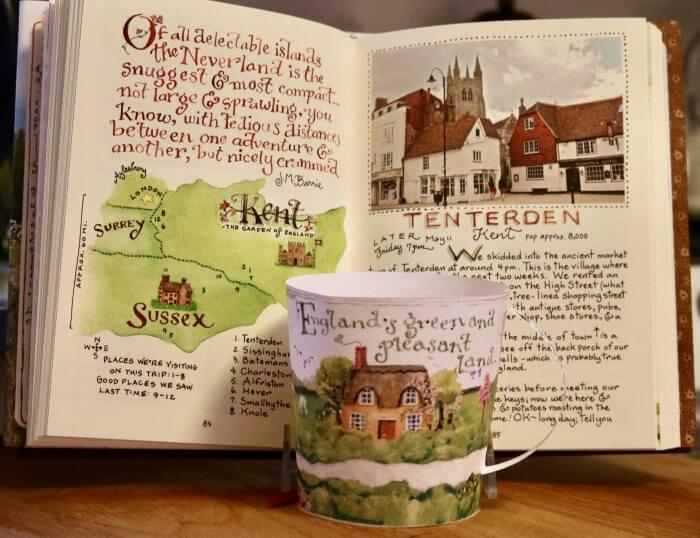 Of all delectable islands
the Neverland is the
snuggest & most compact...
not large & sprawling, you
know, with tedious distances
between one adventure &
another, but nicely crammed
J.M. Barrie
Aylesbury
LONDON
SURREY
Kent
"THE GARDEN OF ENGLAND"
APPROX. 60 MI.
Sussex
N
W E
S
PLACES WE'RE VISITING
ON THIS TRIP: 1-8
GOOD PLACES WE SAW
LAST TIME: 9-12
1. Tenterden
2. Sissinghur
3. Bateman's
4. Charleston
5. Alfriston
6. Hever
7. Smallhythe
8. Knole
84
TENTERDEN
LATER May 11
Friday 7pm
Kent pop approx. 8,000
We skidded into the ancient market
of Tenterden at around 4pm. This is the village where
next two weeks. We rented an
on the High Street (what
tree-lined shopping street
with antique stores, pubs,
shop, shoe stores, &a
the middle of town is a
off the back porch of our
which is probably true
land.
before meeting our
keys; now we're here &
& potatoes roasting in the
me! OK~ long day; Tell you
85
England's green and
pleasant
land.